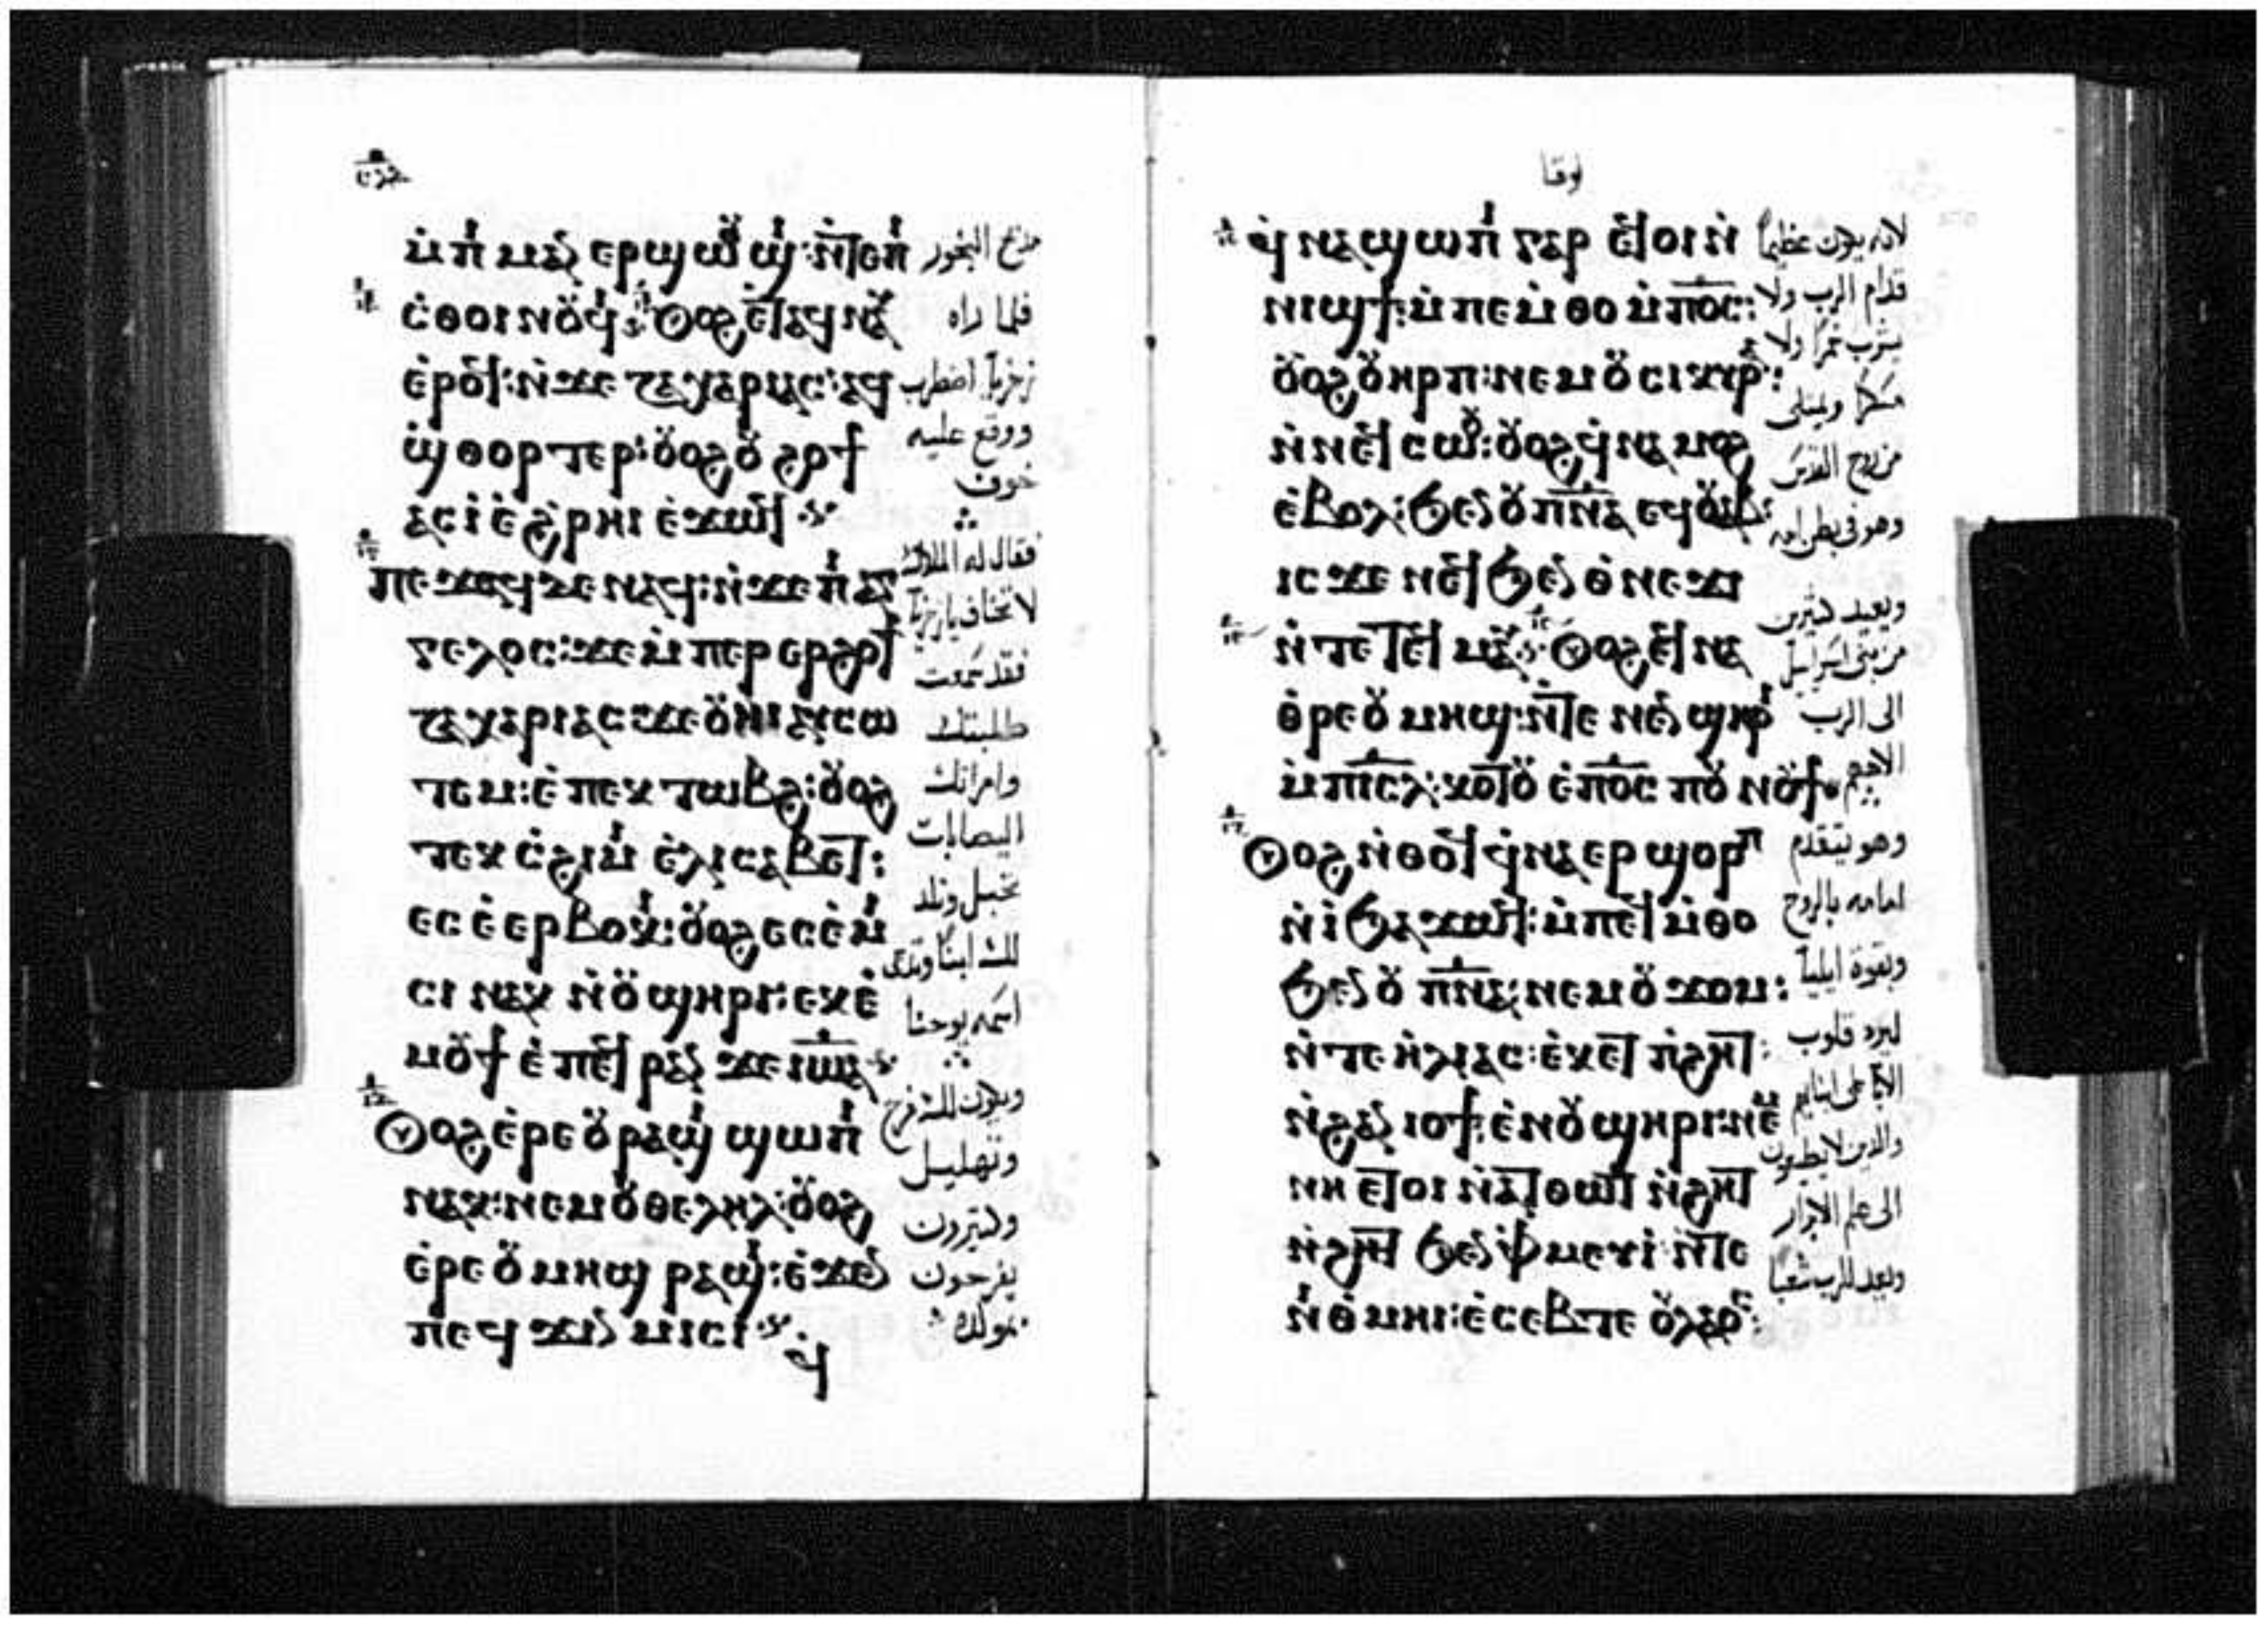 ⲙ̀ⲡⲓⲙⲁⲛⲉⲣϣⲱⲟⲩϣⲓ: ⲛ̀ⲧⲉⲡⲓ
ⲥ̀ⲑⲟⲓⲛⲟⲩϥⲓ
ⲟⲩⲟϩ ⲉⲧⲁϥⲛⲁⲩ
ⲉ̀ⲣⲟϥ: ⲛ̀ϫⲉ ⲍⲁⲭⲁⲣⲓⲁⲥ: ⲁϥ
ϣ̀ⲑⲟⲣⲧⲉⲣ: ⲟⲩⲟϩ ⲟⲩϩⲟϯ
ⲁⲥⲓ̀ ⲉ̀ϩ̀ⲣⲏⲓ ⲉ̀ϫⲱϥ
ⲡⲉϫⲁϥ ⲇⲉ ⲛⲁϥ: ⲛ̀ϫⲉ ⲡⲓⲁⲅ
ⲅⲉⲗⲟⲥ: ϫⲉ ⲙ̀ⲡⲉⲣⲉⲣϩⲟϯ
ⲍⲁⲭⲁⲣⲓⲁⲥ ϫⲉ ⲟⲩⲏⲓ ⲁⲩⲥⲱ
ⲧⲉⲙ: ⲉ̀ⲡⲉⲕⲧⲱⲃϩ: ⲟⲩⲟϩ
ⲧⲉⲕⲥ̀ϩⲓⲙⲓ ⲉ̀ⲗⲓⲥⲁⲃⲉⲧ:
ⲉⲥⲉ̀ⲉⲣⲃⲟⲕⲓ: ⲟⲩⲟϩ ⲉⲥⲉ̀ⲙⲓ
ⲥⲓ ⲛⲁⲕ ⲛ̀ⲟⲩϣⲏⲣⲓ: ⲉⲕⲉ̀
ⲙⲟⲩϯ ⲉ̀ⲡⲉϥⲣⲁⲛ ϫⲉ ⲓⲱⲁ
ⲟⲩⲟϩ ⲉ̀ⲣⲉⲟⲩⲣⲁϣⲓ ϣⲱⲡⲓ
ⲛⲁⲕ: ⲛⲉⲙ ⲟⲩⲑⲉⲗⲏⲗ: ⲟⲩⲟϩ
ⲉ̀ⲣⲉⲟⲩⲙⲏϣ ⲣⲁϣⲓ: ⲉ̀ϫⲉⲛ
ⲡⲉϥϫⲓⲛⲙⲓⲥⲓ
ϥ̀
مذبح البخور
فلما راه
زخريا اضطرب
ووقع عليه
خوف
فقال له الملاك
لا تخاف يا زخريا
فقد سمعت
طلبتك
وامراتك
اليصابات
تحبل وتلد
لك ابنا وتدعى
اسمه يوحنا
ويكون لك فرح
وتهليل
وكثيرون
يفرحون
بمولده
لوقا
ϥ̀ⲛⲁϣⲱⲡⲓ ⲅⲁⲣ ⲉϥⲟⲓ ⲛ̀
ⲛⲓϣϯ: ⲙ̀ⲡⲉⲙ̀ⲑⲟ ⲙ̀ⲡⲟ̅ⲥ̅:
ⲟⲩⲟϩ ⲟⲩⲏⲣⲡ: ⲛⲉⲙ ⲟⲩⲥⲓⲕⲉⲣⲁ:
ⲛ̀ⲛⲉϥⲥⲱⲟⲩ: ⲟⲩⲟϩ ϥ̀ⲛⲁⲙⲟϩ
ⲉ̀ⲃⲟⲗ: ϧⲉⲛ ⲟⲩⲡ̅ⲛ̅ⲁ̅ ⲉϥⲟⲩⲁⲃ:
ⲓⲥϫⲉⲛ ⲉϥϧⲉⲛ ⲑ̀ⲛⲉϫⲓ
ⲛ̀ⲧⲉ ⲧⲉϥⲙⲁⲩ
ⲟⲩⲟϩ ⲉϥⲛⲁ
ⲑ̀ⲣⲉ ⲟⲩⲙⲏϣ: ⲛ̀ⲧⲉ ⲛⲉⲛϣⲏⲣⲓ
ⲙ̀ⲡⲓ̅ⲥ̅ⲗ̅: ⲕⲟⲧⲟⲩ ⲉ̀ⲡⲟ̅ⲥ̅ ⲡⲟⲩⲛⲟⲩϯ
ⲟⲩⲟϩ ⲛ̀ⲑⲟϥ ϥ̀ⲛⲁⲉⲣϣⲟⲣⲡ
ⲛ̀ⲓ̀ ϧⲁϫⲱϥ: ⲙ̀ⲡⲉϥⲙ̀ⲑⲟ
ϧⲉⲛ ⲟⲩⲡ̅ⲛ̅ⲁ̅: ⲛⲉⲙ ⲟⲩϫⲟⲙ:
ⲛ̀ⲧⲉ ⲏ̀ⲗⲓⲁⲥ: ⲉ̀ⲕⲉⲧ ⲡ̀ϩⲏⲧ:
ⲛ̀ϩⲁⲛⲓⲟϯ: ⲉ̀ⲛⲟⲩϣⲏⲣⲓ: ⲛⲉⲙ
ⲛⲏ ⲉⲧⲟⲓ ⲛ̀ⲁⲧⲑⲱⲧ ⲛ̀ϩⲏⲧ
ⲛ̀ϩⲣⲏⲓ ϧⲉⲛ ⲫ̀ⲙⲉⲩⲓ̀: ⲛ̀ⲧⲉ
ⲛⲓⲑ̀ⲙⲏⲓ: ⲉ̀ⲥⲉⲃⲧⲉ ⲟⲩⲗⲁⲟⲥ:
لانه يكون عظيما
قدام الرب ولا
يشرب خمرا ولا
مسكرا ويمتلى
من روح القدس
وهو فى بطن امه
ويعيد كثيرين
من بنى اسراييل
الى الرب
الاههم
وهو يتقدم
امامه بالروح
وبقوة ايليا
ليرد قلوب
الابا على ابنايهم
والذين لا يطيعون
الى علم الابرار
ويعد للرب شعبا